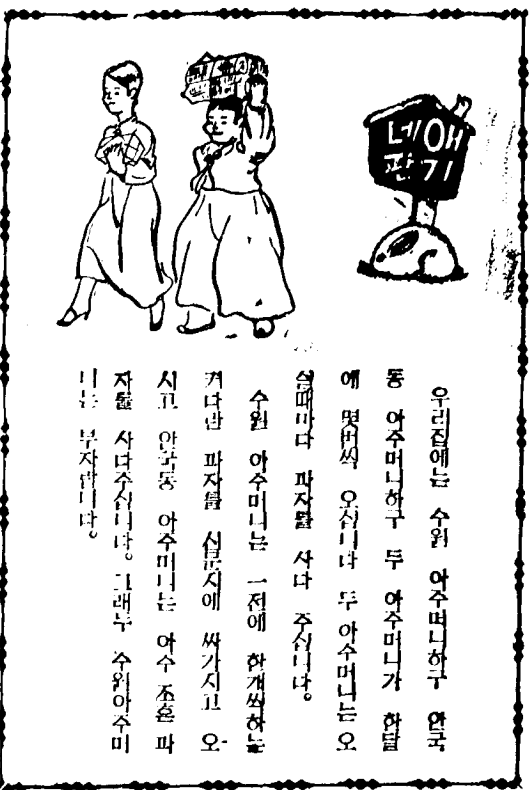 애기
네판
우리집에는 수원 아주머니하구 안국
동 아주머니하구 두 아주머니가 한달
에 몇번씩 오십니다 두 아주머니는 오
실때마다 과자를 사다 주십니다。
수원 아주머니는 一전에 한개씩하는
커다란 과자를 신문지에 싸가지고 오
시고 안국동 아주머니는 아주 조흔 과
자를 사다주십니다。그래두 수원아주머
니는 부자랍니다。